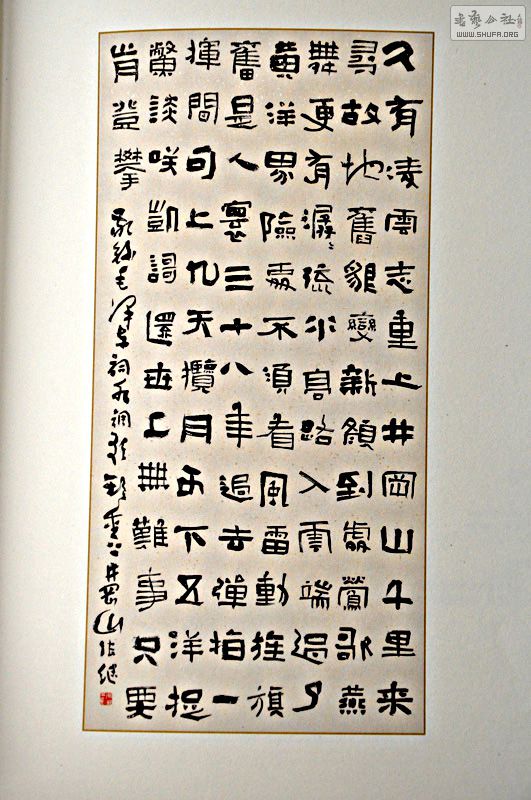 久有凌雲志重上井岡山千里来
尋故地舊貌變新顏到處鶯歌燕
舞更有潺潺流水高路入雲端過了
黄洋界險處不須看風雷動旌旗
奮是人寰三十八年過去彈指一
揮間可上九天攬月可下五洋捉
鱉談笑凱謌還世上無難事只要
肯登攀 敬録毛澤東詞水調歌頭重上井岡山 張継
書藝公社
WWW.SHUFA.ORG